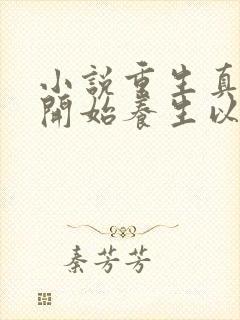 小説重生真
開始養生以
秦芳芳